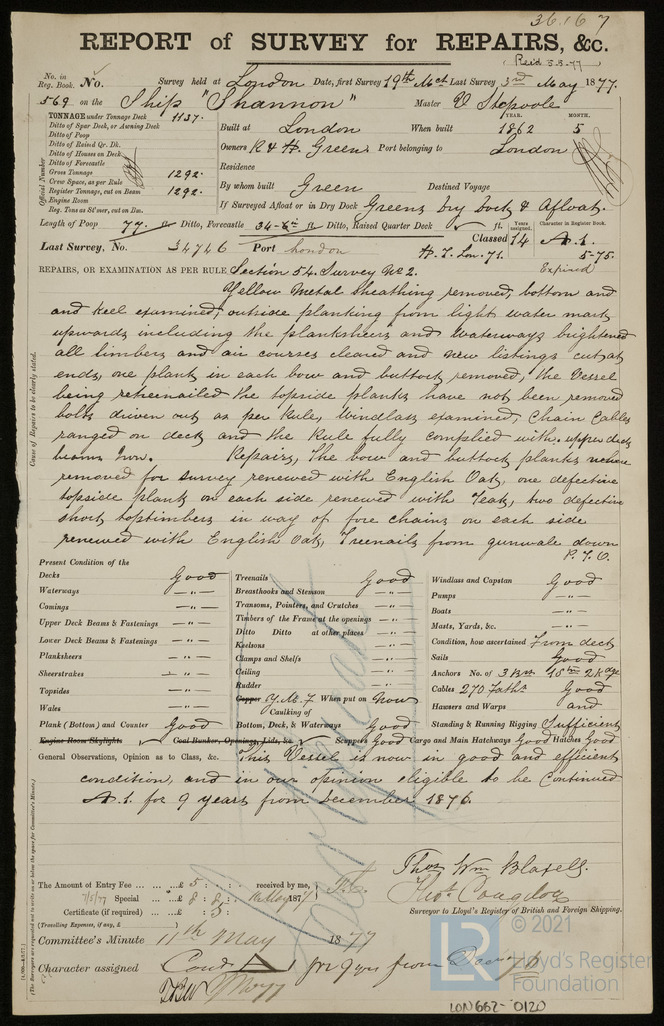 36167
REPORT of SURVEY for REPAIRS, &c.
Recd 5.5.77
No. in Reg. Book. No. Survey held at London Date, first Survey 19th Oct Last Survey 3rd May 1877.
569 on the Ship "Shannon" Master
TONNAGE under Tonnage Deck 1137.
Ditto of Spar Deck, or Awning Deck
Ditto of Poop
Ditto of Raised Qr. Dk.
Ditto of Houses on Deck
Ditto of Forecastle
Gross Tonnage 1292.
Crew Space, as per Rule
Register Tonnage, cut on Beam 1292.
Engine Room
Reg. Tons as St'mer, cut on Bm.
Official Number
Built at London When built YEAR. 1862 MONTH. 5
Owners R & H. Green Port belonging to London
Residence
By whom built Green Destined Voyage
If Surveyed Afloat or in Dry Dock Greens Dry Dock & Afloat.
Length of Poop 77. ft. Ditto, Forecastle 34-6in ft. Ditto, Raised Quarter Deck ft.
Years assigned. Character in Register Book.
Classed 14 A.1.
Last Survey, No. 34746 Port London H.T. Lon. 71. 5-75.
Expired
REPAIRS, OR EXAMINATION AS PER RULE Section 54. Survey No 2.
Yellow Metal Sheathing removed, bottom and
and Keel examined, outside planking from light water mark
upwards including the plankshiers and Waterways brightened
all limbers and air courses cleared and new listings cut at
ends, one plank in each bow and buttock removed, the Vessel
being retreenailed the topside planks have not been removed
bolts driven out as per Rule, Windlass examined, Chain Cables
ranged on deck and the Rule fully complied with. upper deck
beams Iron. Repairs, The bow and buttock planks where
removed for survey renewed with English Oak, one defective
topside plank on each side renewed with Teak, two defective
short toptimbers in way of fore chains on each side
renewed with English Oak, Treenails from gunwale down
P.T.O.
Cause of Repairs to be clearly stated.
Present Condition of the
Decks Good
Waterways — " —
Comings — " —
Upper Deck Beams & Fastenings — " —
Lower Deck Beams & Fastenings — " —
Planksheers — " —
Sheerstrakes — " —
Topsides — " —
Wales — " —
Plank (Bottom) and Counter Good
Engine Room Skylights Coal Bunker, Openings, Lids, &c. Scuppers Good Cargo and Main Hatchways Good Hatches Good
Treenails Good
Breasthooks and Stemson — " —
Transoms, Pointers, and Crutches — " —
Timbers of the Frame at the openings — " —
Ditto Ditto at other places — " —
Keelsons — " —
Clamps and Shelfs — " —
Ceiling — " —
Rudder — " —
Copper Y.M. F When put on Now
Caulking of
Bottom, Deck, & Waterways Good
Windlass and Capstan Good
Pumps — " —
Boats — " —
Masts, Yards, &c. — " —
Condition, how ascertained From deck
Sails Good
Anchors No. of 3 Brs 1 Stm 2 Kdge
Cables 270 Faths Good
Hawsers and Warps and
Standing & Running Rigging Sufficient
General Observations, Opinion as to Class, &c. This Vessel is now in good and efficient
condition, and in our opinion eligible to be Continued
A.1. for 9 years from December 1876.
Thos Wm Blaxell.
Thos. Congdon
Surveyor to Lloyd's Register of British and Foreign Shipping.
The Amount of Entry Fee £ 5 : : received by me,
7/5/77 Special £ 8 : 8 : 187
Certificate (if required) : 5
(Travelling Expenses, if any, £ )
Committee's Minute 11th May 1877
Character assigned Cond A for 9 yrs from Decr 76
(The Surveyors are requested not to write on or below the space for Committee's Minute.)
© 2021
LR
Lloyd's Register
Foundation
LON662-0120